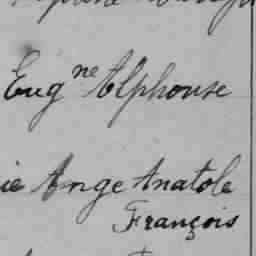 Eug^ne Alphonse
ie Ange Anatole
François